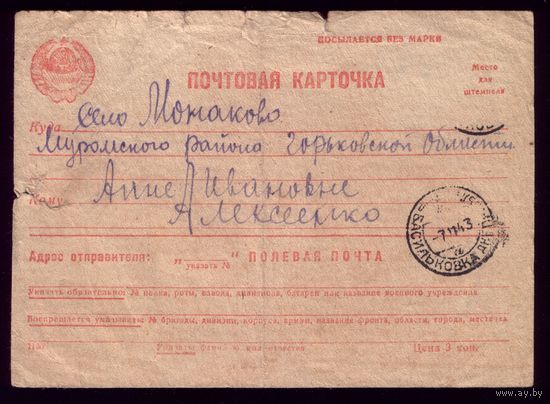 ПОСЫЛАЕТСЯ БЕЗ МАРКИ
ПОЧТОВАЯ КАРТОЧКА
Место
для
штемпеля
Куда село Монаково
Муромского района Горьковской Области
Кому Анне Ивановне
Алексеенко
ВАСИЛЬКОВКА
-7 11 43
Адрес отправителя: „ “ ПОЛЕВАЯ ПОЧТА
указать №
Указать обязательно: № полка, роты, взвода, дивизиона, батареи или название военного учреждения
Воспрещается указывать: № бригады, дивизии, корпуса, армии, название фронта, области, города, местечка
Указать фамилию, имя, отчество
Цена 3 коп.
www.ay.by